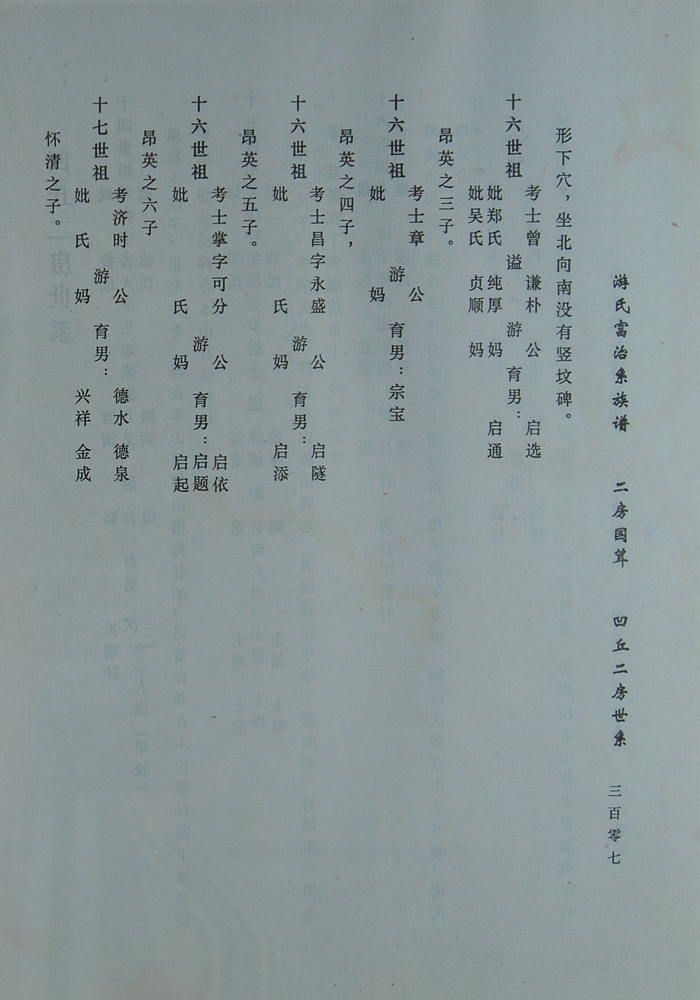 游氏富治系族谱 二房国耸 凹丘二房世系 三百零七
形下穴，坐北向南没有竖坟碑。
十六世祖
考士曾 谦朴 公 启选
谥 游 育男：
妣郑氏 纯厚 妈 启通
妣吴氏 贞顺 妈
昂英之三子。
十六世祖
考士章 公
游 育男：宗宝
妣 妈
昂英之四子，
十六世祖
考士昌字永盛 公 启隧
游 育男：
妣 氏 妈 启添
昂英之五子。
十六世祖
考士掌字可分 公 启依
游 育男：启题
妣 氏 妈 启起
昂英之六子
十七世祖
考济时 公 德水 德泉
游 育男：
妣 氏 妈 兴祥 金成
怀清之子。